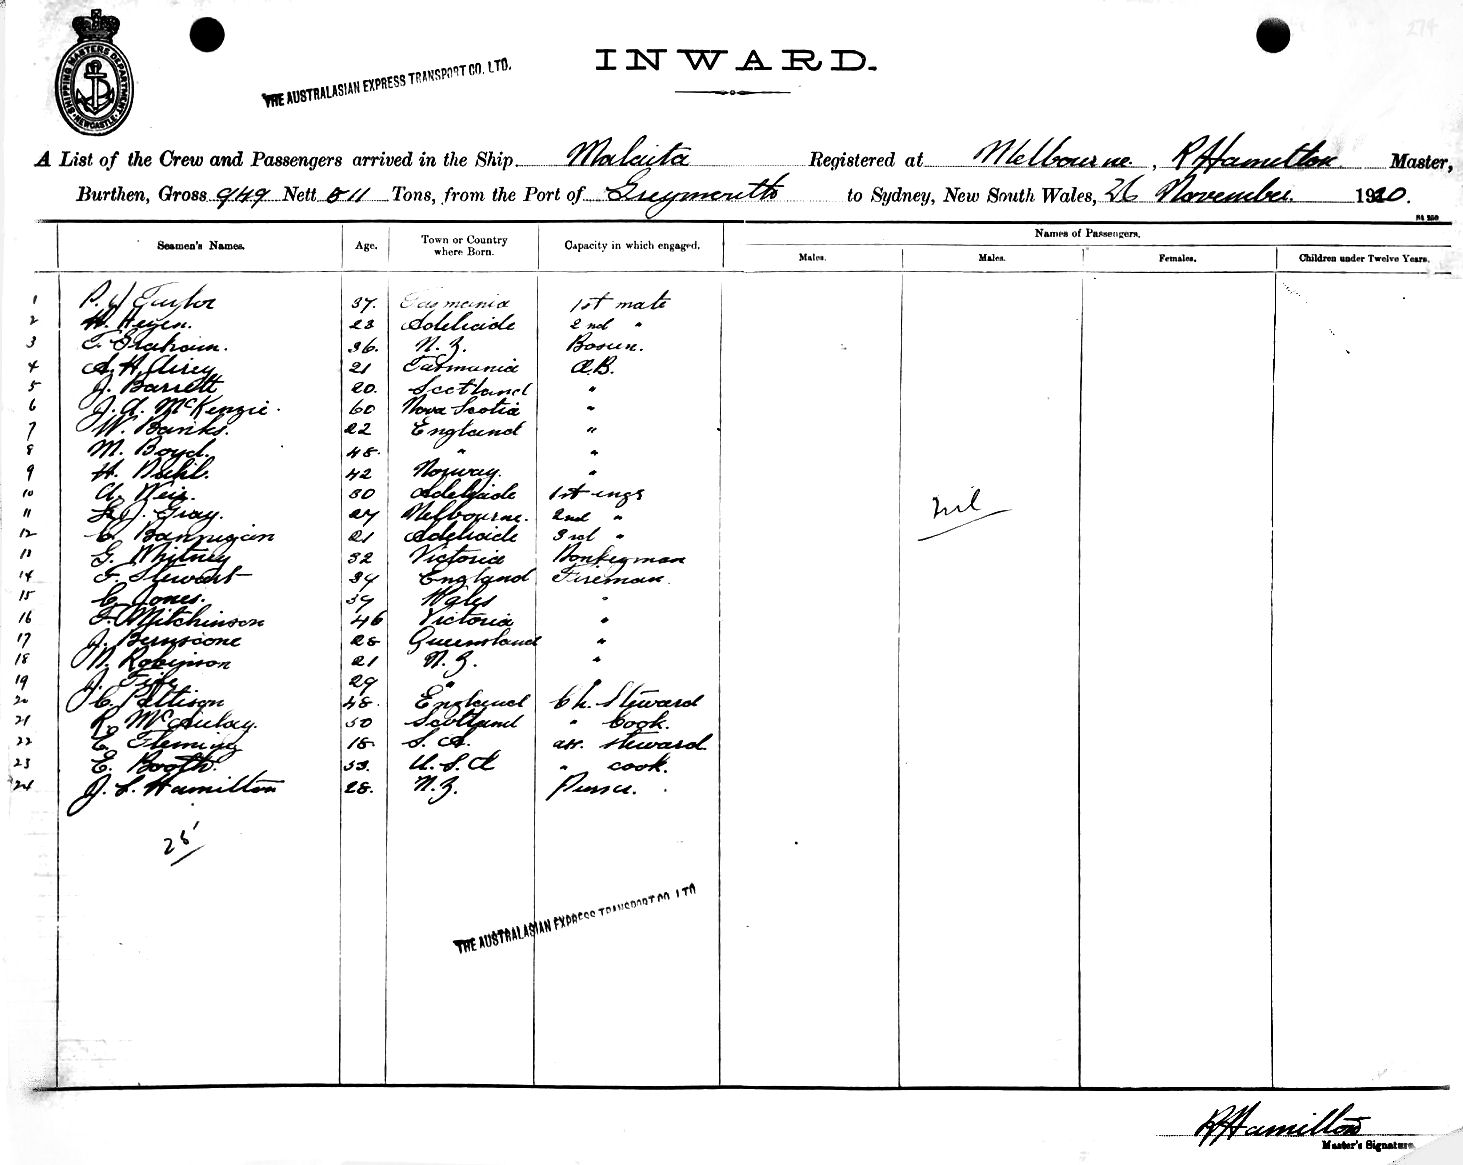 274
SHIPPING MASTERS DEPARTMENT
NEWCASTLE
THE AUSTRALASIAN EXPRESS TRANSPORT CO. LTD.
INWARD.
A List of the Crew and Passengers arrived in the Ship Malaita Registered at Melbourne, R Hamilton Master,
Burthen, Gross 949 Nett 511 Tons, from the Port of Greymouth to Sydney, New South Wales, 26 November 1920.
Seamen's Names. Age. Town or Country where Born. Capacity in which engaged. Names of Passengers.
Males. Males. Females. Children under Twelve Years.
1 P. Taylor 37. Tasmania 1st mate
2 H. Heyen. 23 Adelaide 2nd "
3 T. Graham. 36. N.Z. Bosun.
4 A. H. Airey 21 Tasmania A.B.
5 J. Barrett 20. Scotland "
6 J. A. McKenzie. 60 Nova Scotia "
7 W. Banks. 22 England "
8 M. Boyd. 48. " "
9 H. Dahl. 42 Norway. "
10 A. Weir. 30 Adelaide 1st engr
11 Gray. 27 Melbourne. 2nd "
12 C. Bannigan 21 Adelaide 3rd "
13 G. Whitney 32 Victoria Donkeyman
14 F. Stewart 34 England Fireman
15 C. Jones. 39 Wales "
16 F. Mitchinson 46 Victoria "
17 J. Bernscone 28 Queensland "
18 N. Robinson 21 N.Z. "
19 J. Fife 29 " "
20 J C. Pattison 48. England Ch. Steward
21 R. McAulay. 50 Scotland " Cook.
22 C. Fleming 18 S. A. ass. steward
23 E. Booth. 53. U.S.A " cook.
24 J. L. Hamilton 28. N.Z. Purser.
nil
25
THE AUSTRALASIAN EXPRESS TRANSPORT CO. LTD
R Hamilton
Master's Signature.